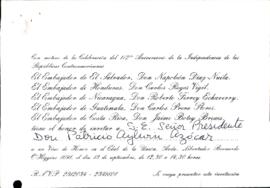 Con motivo de la Celebración del 172º Aniversario de la Independencia de las
Repúblicas Centroamericanas
El Embajador de El Salvador, Don Napoleón Díaz Nuila.
El Embajador de Honduras, Don Carlos Reyes Vigil.
El Embajador de Nicaragua, Don Roberto Ferrey Echaverry.
El Embajador de Guatemala, Don Carlos Prera Flores.
El Embajador de Costa Rica, Don Jaime Botey Brenes.
tienen el honor de invitar a S.E. Señor Presidente
Don Patricio Aylwin Azócar
a un Vino de Honor en el Club de la Unión, Avda. Libertador Bernardo
O'Higgins 1091, el día 15 de septiembre, de 12,30 a 14,30 horas.
R.S.V.P.
Se ruega presentar esta invitación